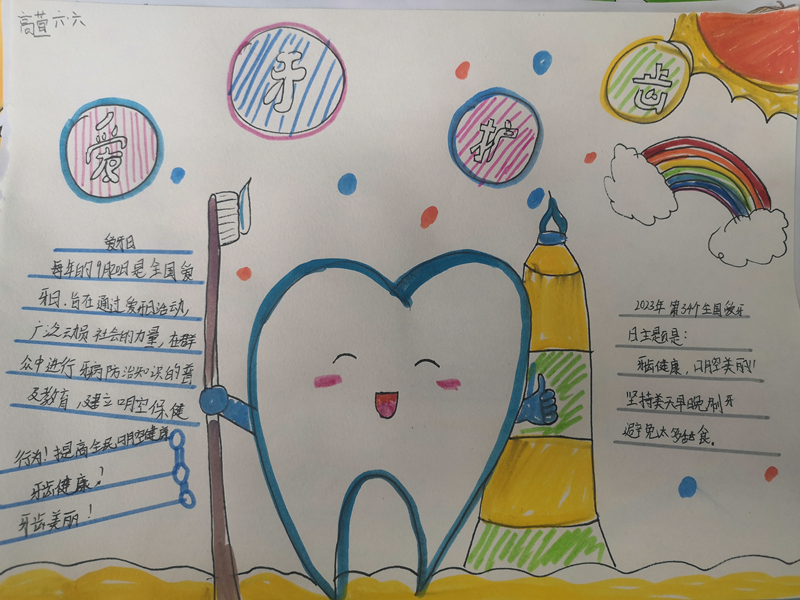 高萱 六·六
爱牙护齿
爱牙日
每年的9月20日是全国爱
牙日.旨在通过爱牙日活动,
广泛动员社会的力量,在群
众中进行牙病防治知识的普
及教育,建立口腔保健
行为!提高全民口腔健康
牙齿健康!
牙齿美丽!
2023年 第34个全国爱牙
日主题是:
牙齿健康,口腔美丽!!
坚持每天早晚刷牙
避免太多甜食。